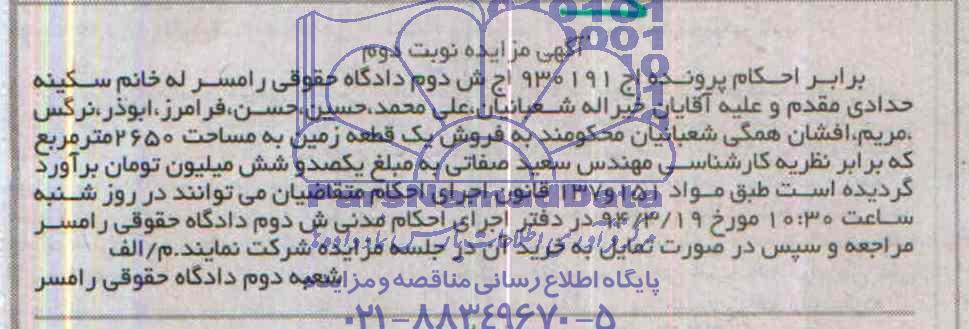 آگهی مزایده نوبت دوم
برابر احکام پرونده اج ۹۳۰۱۹۱ اج ش دوم دادگاه حقوقی رامسر له خانم سکینه
حدادی مقدم و علیه آقایان خیراله شعبانیان،علی محمد،حسین،حسن،فرامرز،ابوذر،نرگس
،مریم،افشان همگی شعبانیان محکومند به فروش یک قطعه زمین به مساحت ۲۶۵۰مترمربع
که برابر نظریه کارشناسی مهندس سعید صفاتی به مبلغ یکصدو شش میلیون تومان برآورد
گردیده است طبق مواد ۱۵۱و۱۳۷ قانون اجرای احکام متقاضیان می توانند در روز شنبه
ساعت ۱۰:۳۰ مورخ ۹۴/۳/۱۹ در دفتر اجرای احکام مدنی ش دوم دادگاه حقوقی رامسر
مراجعه و سپس در صورت تمایل به خرید آن در جلسه مزایده شرکت نمایند.م/الف
شعبه دوم دادگاه حقوقی رامسر
پایگاه اطلاع رسانی مناقصه و مزایده
۰۲۱-۸۸۳۴۹۶۷۰-۵